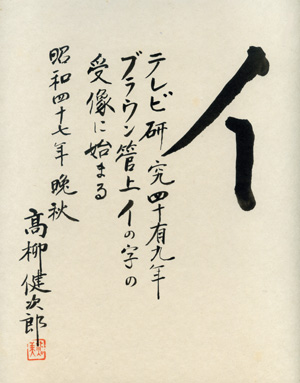 イ
テレビ研究四十有九年
ブラウン管上イの字の
受像に始まる
昭和四十七年晩秋
高柳健次郎